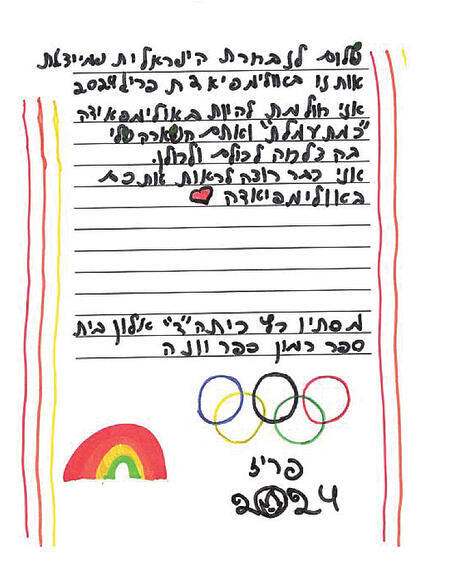 שלום לנבחרת הישראלית שמייצגת
אותנו באולימפיאדת פריז 2024
אני חולמת להיות באולימפיאדה
"כמתעמלת" ואתם השארה שלי
בהצלחה לכולם ולכולן.
אני כבר רוצה לראות אותכם
באולימפיאדה
מסתיו כיתה "ד" אלון בית
ספר רמון כפר יונה
פריז
2024